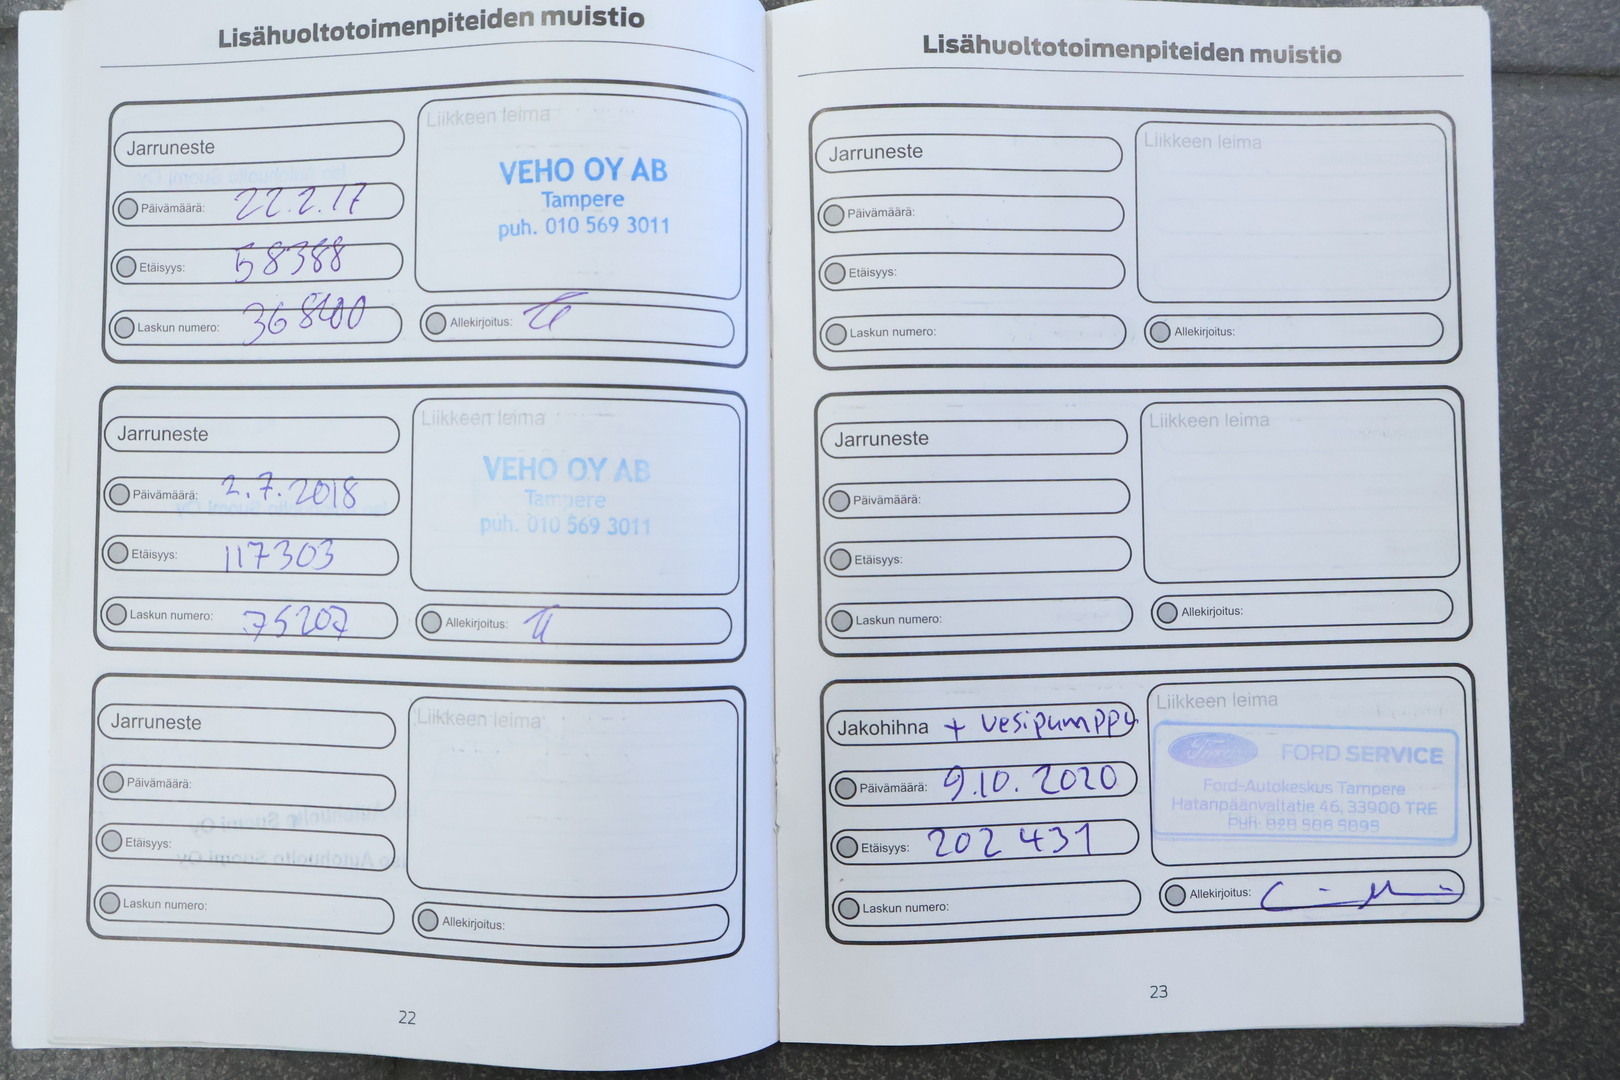 Lisähuoltotoimenpiteiden muistio
Jarruneste
Päivämäärä: 22.2.17
Etäisyys: 58388
Laskun numero: 368400
Liikkeen leima
VEHO OY AB
Tampere
puh. 010 569 3011
Allekirjoitus:
Jarruneste
Päivämäärä: 2.7.2018
Etäisyys: 117303
Laskun numero: 75207
Liikkeen leima
VEHO OY AB
Tampere
puh. 010 569 3011
Allekirjoitus:
Jarruneste
Päivämäärä:
Etäisyys:
Laskun numero:
Liikkeen leima
Allekirjoitus:
22
Lisähuoltotoimenpiteiden muistio
Jarruneste
Päivämäärä:
Etäisyys:
Laskun numero:
Liikkeen leima
Allekirjoitus:
Jarruneste
Päivämäärä:
Etäisyys:
Laskun numero:
Liikkeen leima
Allekirjoitus:
Jakohihna + vesipumppu
Päivämäärä: 9.10.2020
Etäisyys: 202 431
Laskun numero:
Liikkeen leima
Ford FORD SERVICE
Ford-Autokeskus Tampere
Hatanpäänvaltatie 46, 33900 TRE
Puh.
Allekirjoitus:
23